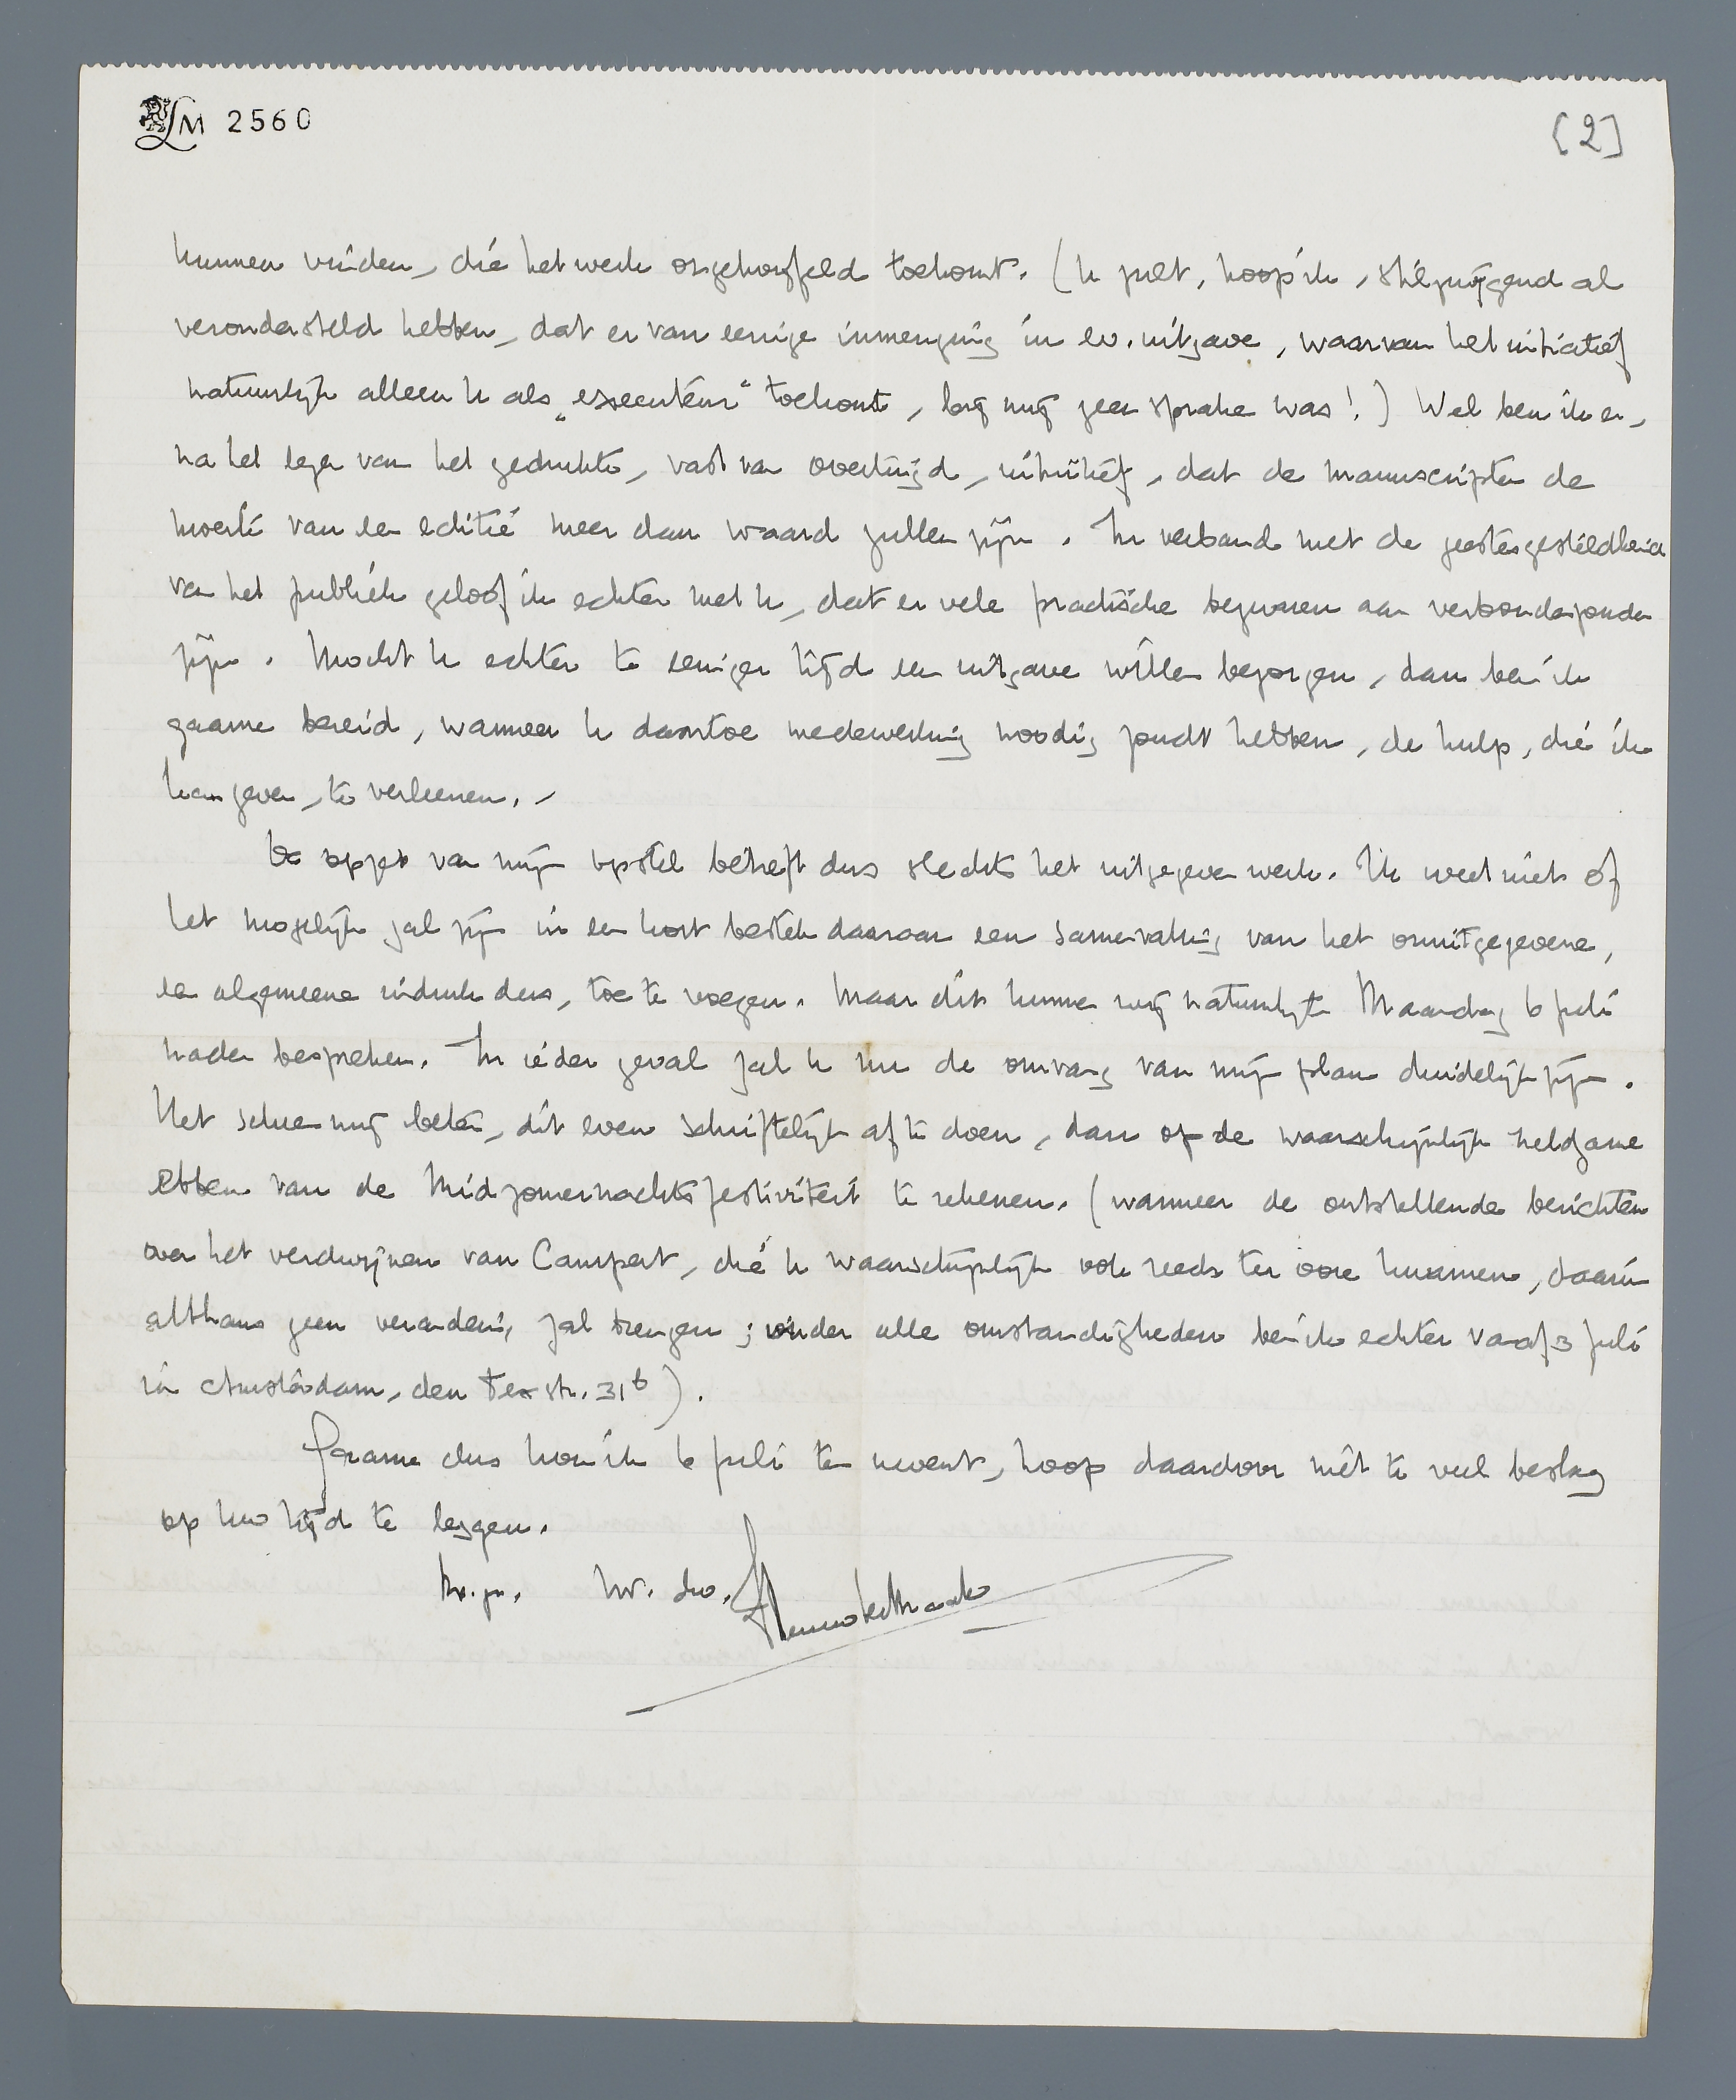 LM 2560
[2]
kunnen vinden, die het werk ongetwijfeld toekomt. (U zult, hoop ik, stilzwijgend al
verondersteld hebben, dat er van eenige inmenging in ev. uitgave, waarvan het initiatief
natuurlijk alleen U als „executeur" toekomt, bij mij geen sprake was!) Wel ben ik er,
na het lezen van het gedrukte, vast van overtuigd, intuïtief, dat de manuscripten de
moeite van een editie meer dan waard zullen zijn. In verband met de geestesgesteldheid
van het publiek geloof ik echter met U, dat er vele practische bezwaren aan verbonden zouden
zijn. Mocht U echter te eeniger tijd een uitgave willen bezorgen, dan ben ik
gaarne bereid, wanneer U daartoe medewerking noodig zoudt hebben, de hulp, die ik
kan geven, te verleenen. –
De opzet van mijn opstel betreft dus slechts het uitgegeven werk. Ik weet niet of
het mogelijk zal zijn in een kort bestek daaraan een samenvatting van het onuitgegevene,
een algemeene indruk dus, toe te voegen. Maar dit kunnen wij natuurlijk Maandag 6 Juli
nader bespreken. In ieder geval zal U nu de omvang van mijn plan duidelijk zijn.
Het scheen mij beter, dit even schriftelijk af te doen, dan op de waarschijnlijk heldzame
ebben van de Midzomernachtsfestiviteit te rekenen. (wanneer de ontstellende berichten
over het verdwijnen van Campert, die U waarschijnlijk ook reeds ter oore kwamen, daarin
althans geen verandering zal brengen; onder alle omstandigheden ben ik echter vanaf 3 Juli
in Amsterdam, den Texstr. 31b).
Gaarne dus kom ik 6 Juli ten Uwent, hoop daardoor niet te veel beslag
op Uw tijd te leggen.
m. vr. gr. Uw. dw.
Menno ter Braak